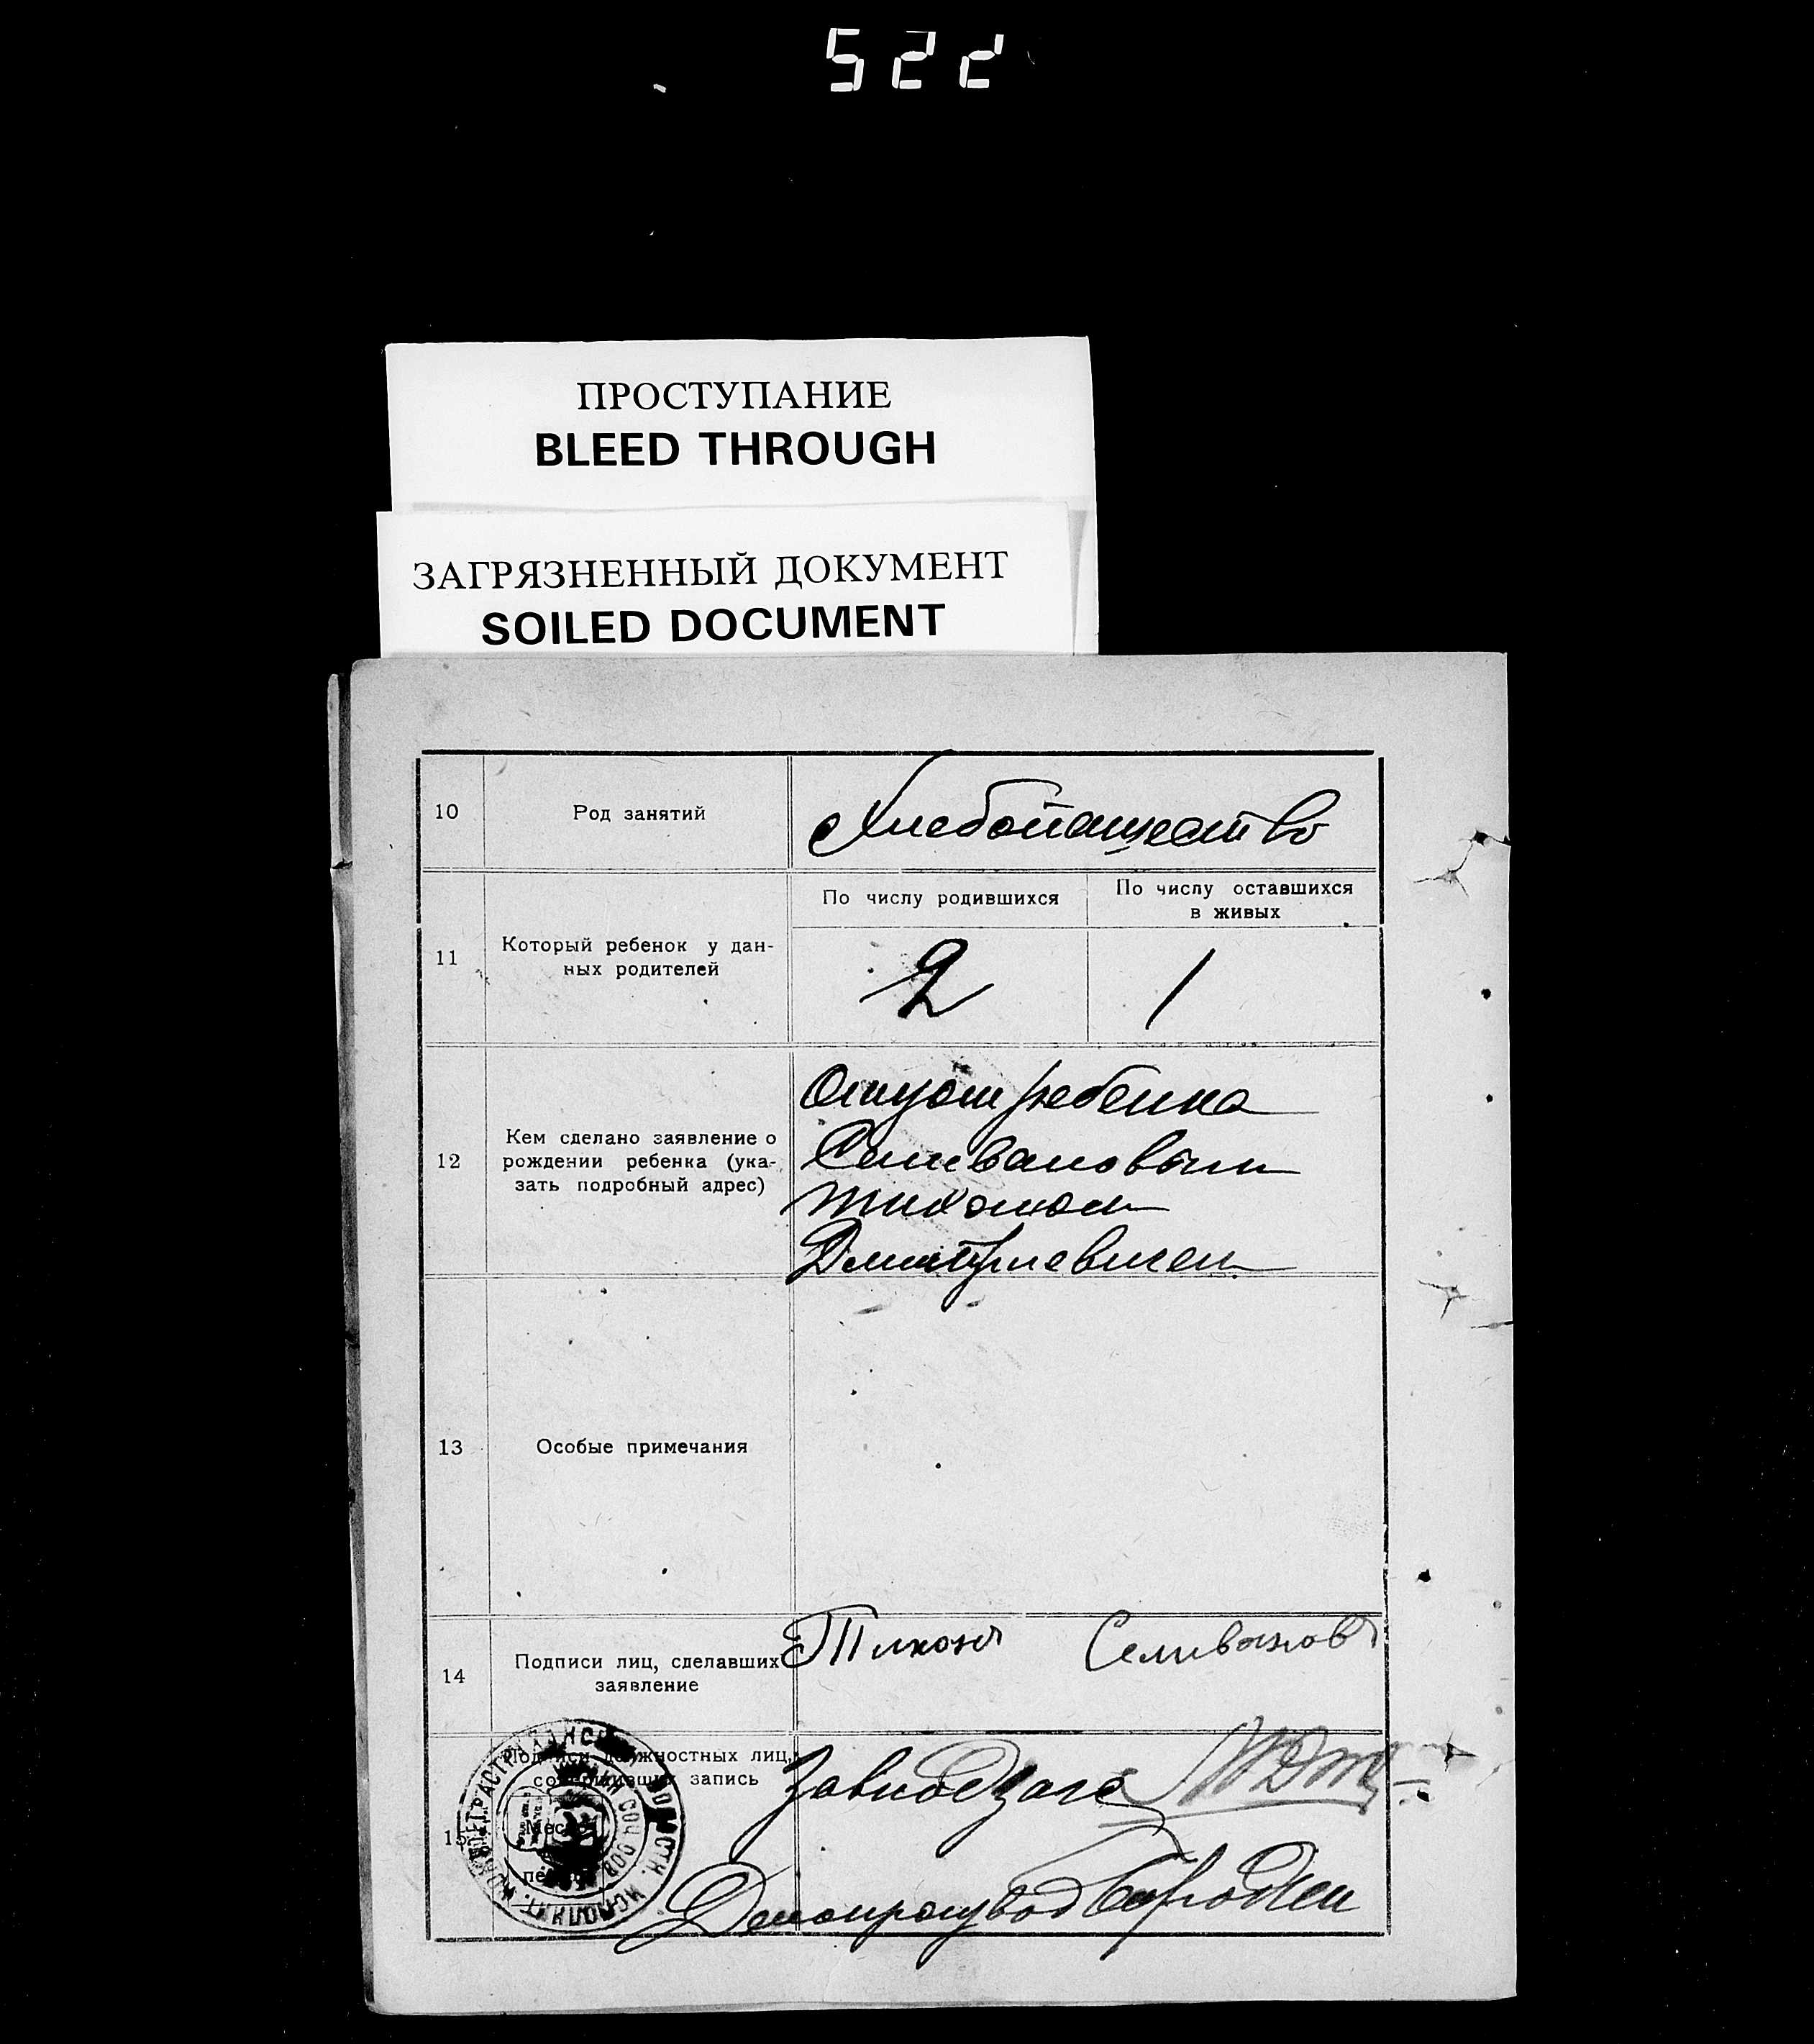 522
ПРОСТУПАНИЕ
BLEED THROUGH
ЗАГРЯЗНЕННЫЙ ДОКУМЕНТ
SOILED DOCUMENT
10 Род занятий Хлебопашество
По числу родившихся По числу оставшихся
в живых
11 Который ребенок у дан-
ных родителей 2 1
12 Кем сделано заявление о
рождении ребенка (ука-
зать подробный адрес)
Отцом ребенка
Селивановым
Тихоном
Дмитриевичем
13 Особые примечания
14 Подписи лиц, сделавших
заявление
Тихон Селиванов
15 Подписи должностных лиц,
совершивших запись
Завподзагс
Место
печати
Делопроизвод